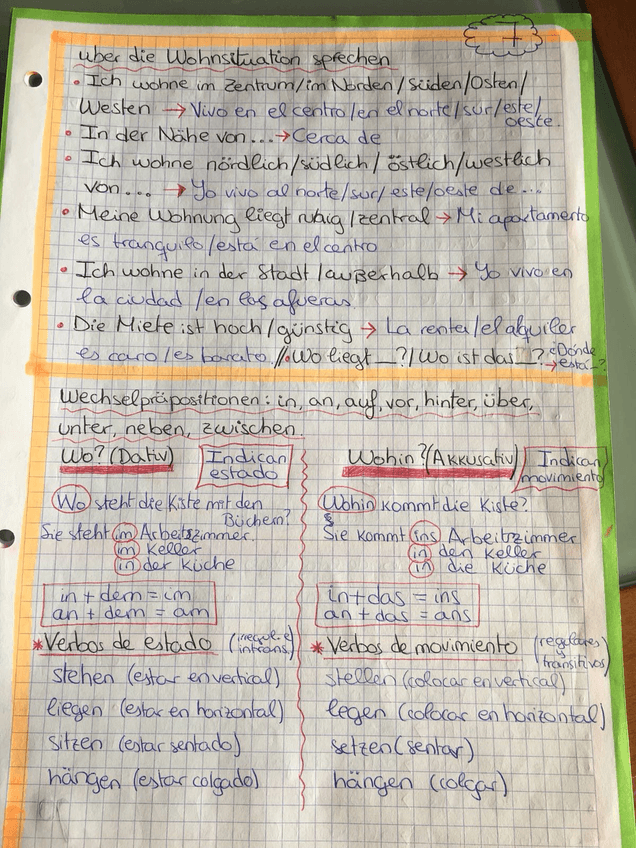 1
über die Wohnsituation sprechen
• Ich wohne im Zentrum/im Norden/Süden/Osten/
Westen → Vivo en el centro/en el norte/sur/este/
oeste.
• In der Nähe von... → Cerca de
• Ich wohne nördlich/südlich/östlich/westlich
von... → Yo vivo al norte/sur/este/oeste de...
• Meine Wohnung liegt ruhig/zentral → Mi apartamento
es tranquilo/está en el centro
• Ich wohne in der Stadt/außerhalb → Yo vivo en
la ciudad/en las afueras
• Die Miete ist hoch/günstig → La renta/el alquiler
es caro/es barato. // • Wo liegt _?/Wo ist das _? → ¿Dónde
está _?
Wechselpräpositionen: in, an, auf, vor, hinter, über,
unter, neben, zwischen.
Wo? (Dativ)
Indican
estado
Wo steht die Kiste mit den
Büchern?
Sie steht im Arbeitszimmer.
im Keller
in der Küche
in + dem = im
an + dem = am
* Verbos de estado (irregul. e
intrans.)
stehen (estar en vertical)
liegen (estar en horizontal)
sitzen (estar sentado)
hängen (estar colgado)
Wohin? (Akkusativ)
Indican
movimiento
Wohin kommt die Kiste?
Sie kommt ins Arbeitszimmer
in den Keller
in die Küche
in + das = ins
an + das = ans
* Verbos de movimiento (regulares
y
transitivos)
stellen (colocar en vertical)
legen (colocar en horizontal)
setzen (sentar)
hängen (colgar)